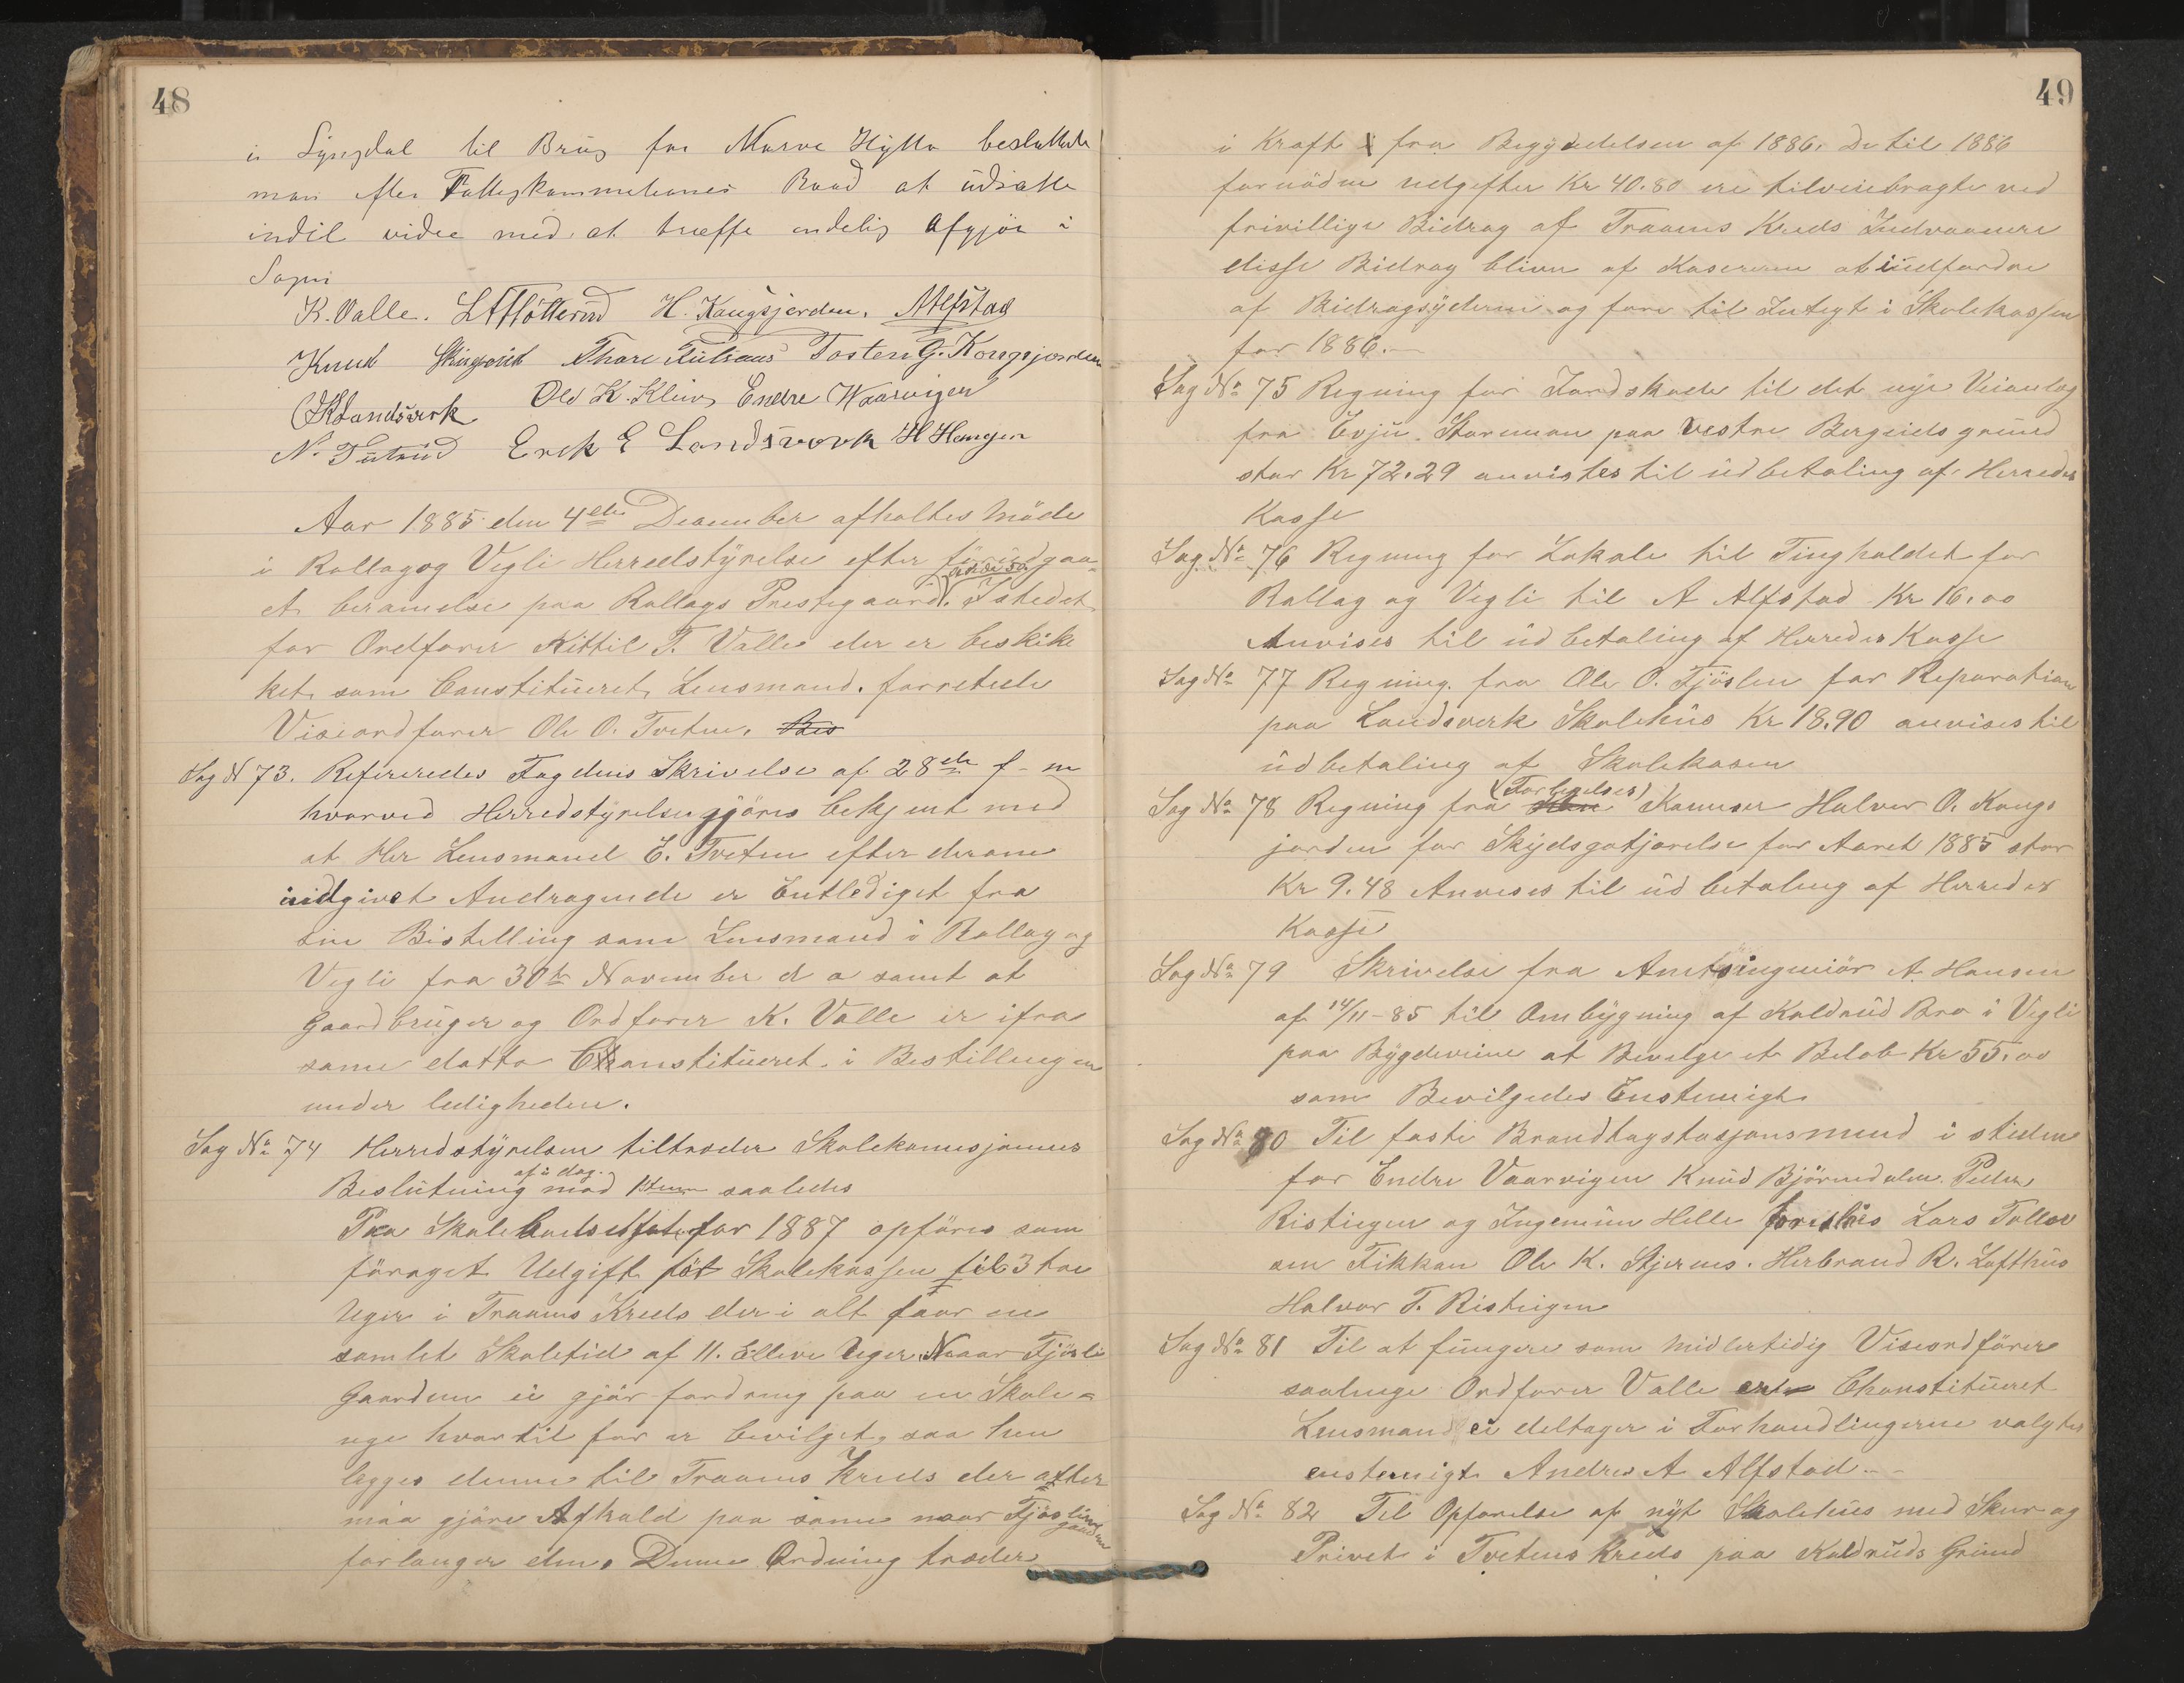 48
i Lyngdal til Brug for Marve Hytta besluttede
man efter Fattigkommetionens Raad at udsætte
indtil videre med at træffe endelig Afgjør i
Sagen
K. Valle. H. Kongsjorden. AAlfstad
Knud Thore Juliens Tosten G. Kongsjorden
Landsverk Ole K. Kleiv Endre Waarvigen
N. Erek E Landsverk H Haugen
Aar 1885 den 4de December afholtes Møde
i Rollag og Vegli Herredstyrelse efter forudgaa-
et beramelse paa Rollags Prestegaard. Istedet
for Ordfører Kittil T. Valle der er beskik
ket som Constitueret Lensmand. forretede
Viseordfører Ole O. Tveten.
Sag N 73. Refereredes Fogdens Skrivelse af 28de f-m
hvorved Herredstyrelsen gjøres bekjent med
at Her Lensmand E. Tveten efter derom
indgivet Andragende er Entlediget fra
sin Bistelling som Lensmand i Rollag og
Vegli fra 30te November d a samt at
Gaardbruger og Ordfører K. Valle er ifra
same datto Constitueret i Bestillingen
under ledigheden.
Sag No 74 Herredstyrelsen tiltræder Skolekomisjonens
Beslutning af i dag mod 1 stemme saaledes
Paa Skolebudsettet for 1887 opføres som
forøget Udgift for Skolekassen til 3 tre
Uger i Traaens Kreds der i alt faar en
samlet Skoletid af 11. Elleve Uger. Naar Fjøsli
Gaardene ei gjør fordring paa en Skole-
uge hvortil før er bevilget, saa hen
legges denne til Traaens Kreds der atter
maa gjøre Afkald paa same naar Fjøsligaardene
forlanger den. Denne Ordning træder
49
i Kraft fra Begyndelsen af 1886. De til 1886
fornødne udgifter Kr 40.80 ere tilveiebragte ved
frivillige Bidrag af Traaens Kreds Indvaanere
disse Bidrag bliver af Kasereren at indfordre
af Bidragsyderne og føre til Indtegt i Skolekassen
for 1886.
Sag No 75 Regning for Jordskade til det nye Veianleg
fra Evju. Starman paa vestre Bergeids grund
stor Kr 72.29 anvistes til udbetaling af Herredes
Kasse
Sag No 76 Regning for Lokale til Tingholdet for
Rollag og Vegli til A Alfstad Kr 16.00
Anvises til udbetaling af Herredes Kasse
Sag No 77 Regning fra Ole O. Fjøslien for Reparation
paa Landsverk Skolehus Kr 18.90 anvises til
udbetaling af Skolekasen
Sag No 78 Regning fra Forligelses Komiser Halvor O. Kongs
jorden for Skydsgotjørelse for Aaret 1885 stor
Kr 9.48 Anvises til udbetaling af Herredes
Kasse
Sag No 79 Skrivelse fra Amtsingeniør A. Hansen
af 14/11-85 til Ombygning af Koldrud Bro i Vegli
paa Bygdeveiene at Bevelge et Beløb Kr 55.00
som Bevilgedes Enstemigt
Sag No 80 Til faste Brandtagstasjonsmend i steden
for Endre Vaarvigen Knud Bjørnedalen Peder
Ristiegen og Ingemun Helle foreslaaes Lars Tollev
sen Fikkan Ole K. Stjernes. Herbrand R. Lofthus
Halvor T. Risteigen
Sag No 81 Til at fungere som midlertidig Viseordfører
saalenge Ordfører Valle er Chonstitueret
Lensmand ei deltager i Forhandlingerne valgtes
enstemigt Andres A Alfstad.
Sag No 82 Til Opførelse af nyt Skolehus med Skur og
Privet i Tvetens Kreds paa Koldruds Grund